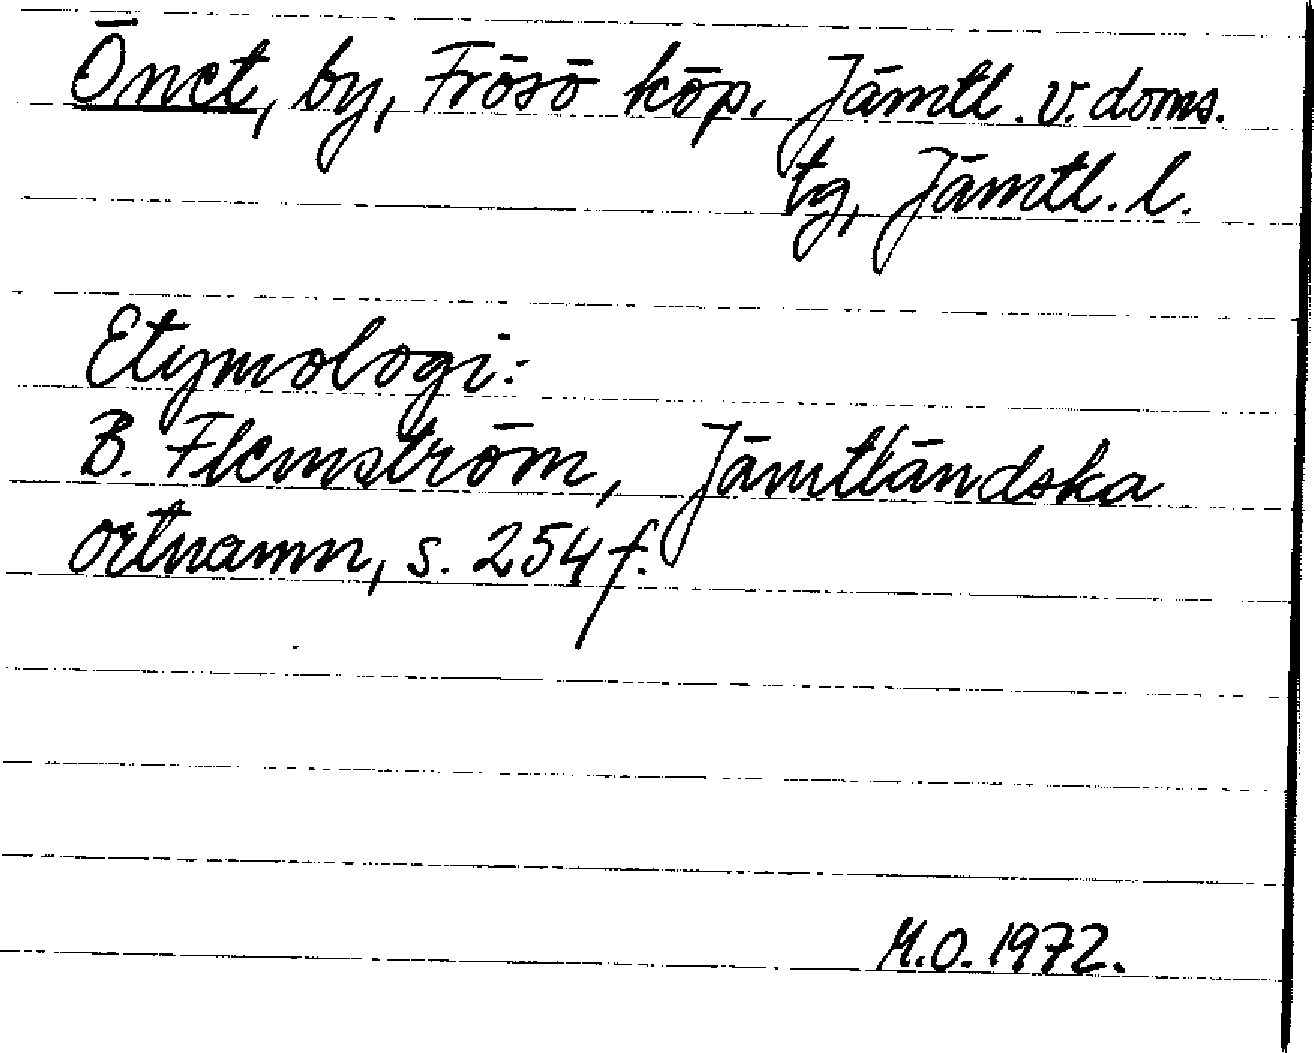 Önet, by, Frösö köp. Jämtl. v. doms.
tg, Jämtl. l.
Etymologi:
B. Flemström, Jämtländska
ortnamn, s. 254 f.
M.O. 1972.